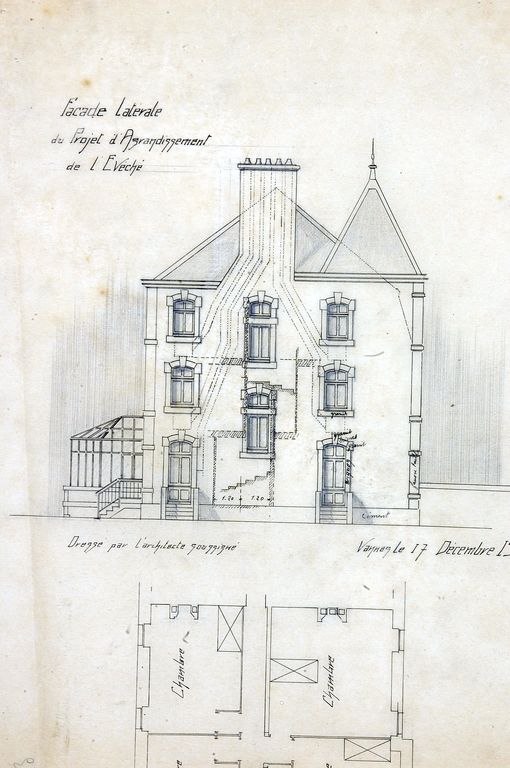 Façade Latérale
du Projet d'Agrandissement
de l'Evêché
1.20 1.20
Ciment
Dressé par l'architecte soussigné
Vannes le 17 Décembre 1
Chambre
Chambre